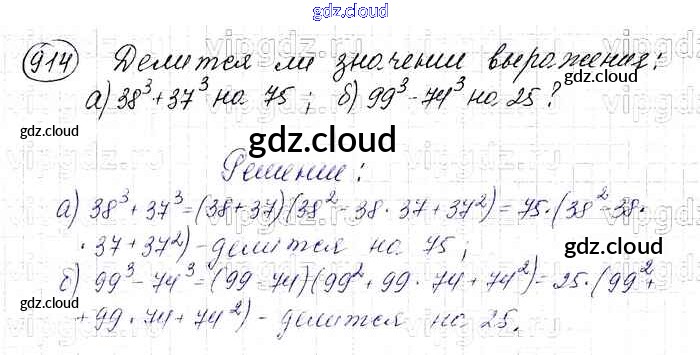 gdz.cloud
914 Делится ли значении выражения:
а) 38³+37³ на 75; б) 99³-74³ на 25?
gdz.cloud
gdz.cloud
gdz.cloud
Решении:
а) 38³+37³=(38+37)(38²-38·37+37²)=75·(38²-38·
·37+37²)-делится на 75;
gdz.cloud
б) 99³-74³=(99-74)(99²+99·74+74²)=25·(99²+
+99·74+74²)-делится на 25.
gdz.cloud
gdz.cloud